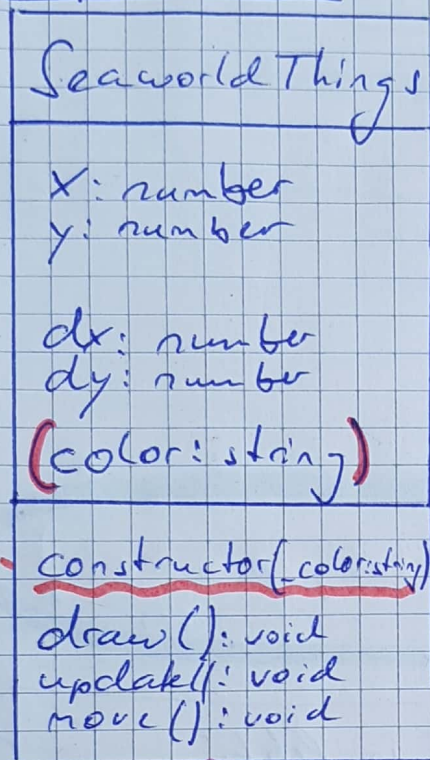 Seaworld Things
x: number
y: number
dx: number
dy: number
(color: string)
constructor(_color:string)
draw(): void
update(): void
move(): void